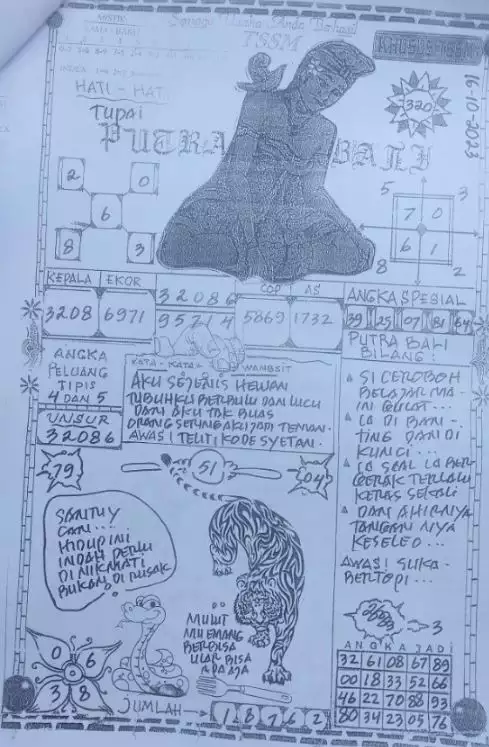 MISTIK
Semoga Usaha Anda Berhasil
TSSM
HATI - HATI
Tupai
PUTRA BALI
320
16-10-2023
2 0
6
8 3
5 3
7 0
6 1
8 2
KEPALA EKOR
3208 6971
32086
95714
COP AS
5869 1732
ANGKA SPESIAL
39 25 07 81 64
ANGKA
PELUANG
TIPIS
4 DAN 5
UNSUR
32086
KATA - KATA WANGSIT
AKU SEJENIS HEWAN
TUBUHKU BERBULU DAN LUCU
DAN AKU TAK BUAS
ORANG SERING JADI TEMAN.
AWAS! TELITI KODE SYETAN.
PUTRA BALI
BILANG:
SI CEROBOH
BELAJAR MA-
IN GULAT...
IA DI BAN-
TING DAN DI
KUNCI...
IA SEAL LA BER-
GERAK TERLALU
KERAS SEKALI
DAN AHIRNYA
TANGAN NYA
KESELEO...
AWAS! SUKA-
BERTOPI...
79
51
04
SANTUY
CAN...
HIDUP INI
INDAH PERLU
DI NIKMATI
BUKAN DI RUSAK
MULUT
MU EMANG
BERBISA
ULAR BISA
APA AJA
0 6
3 8
JUMLAH
1 8 7 6 2
3
ANGKA JADI
32 61 08 67 89
00 18 33 52 66
46 22 70 88 93
80 34 23 05 76